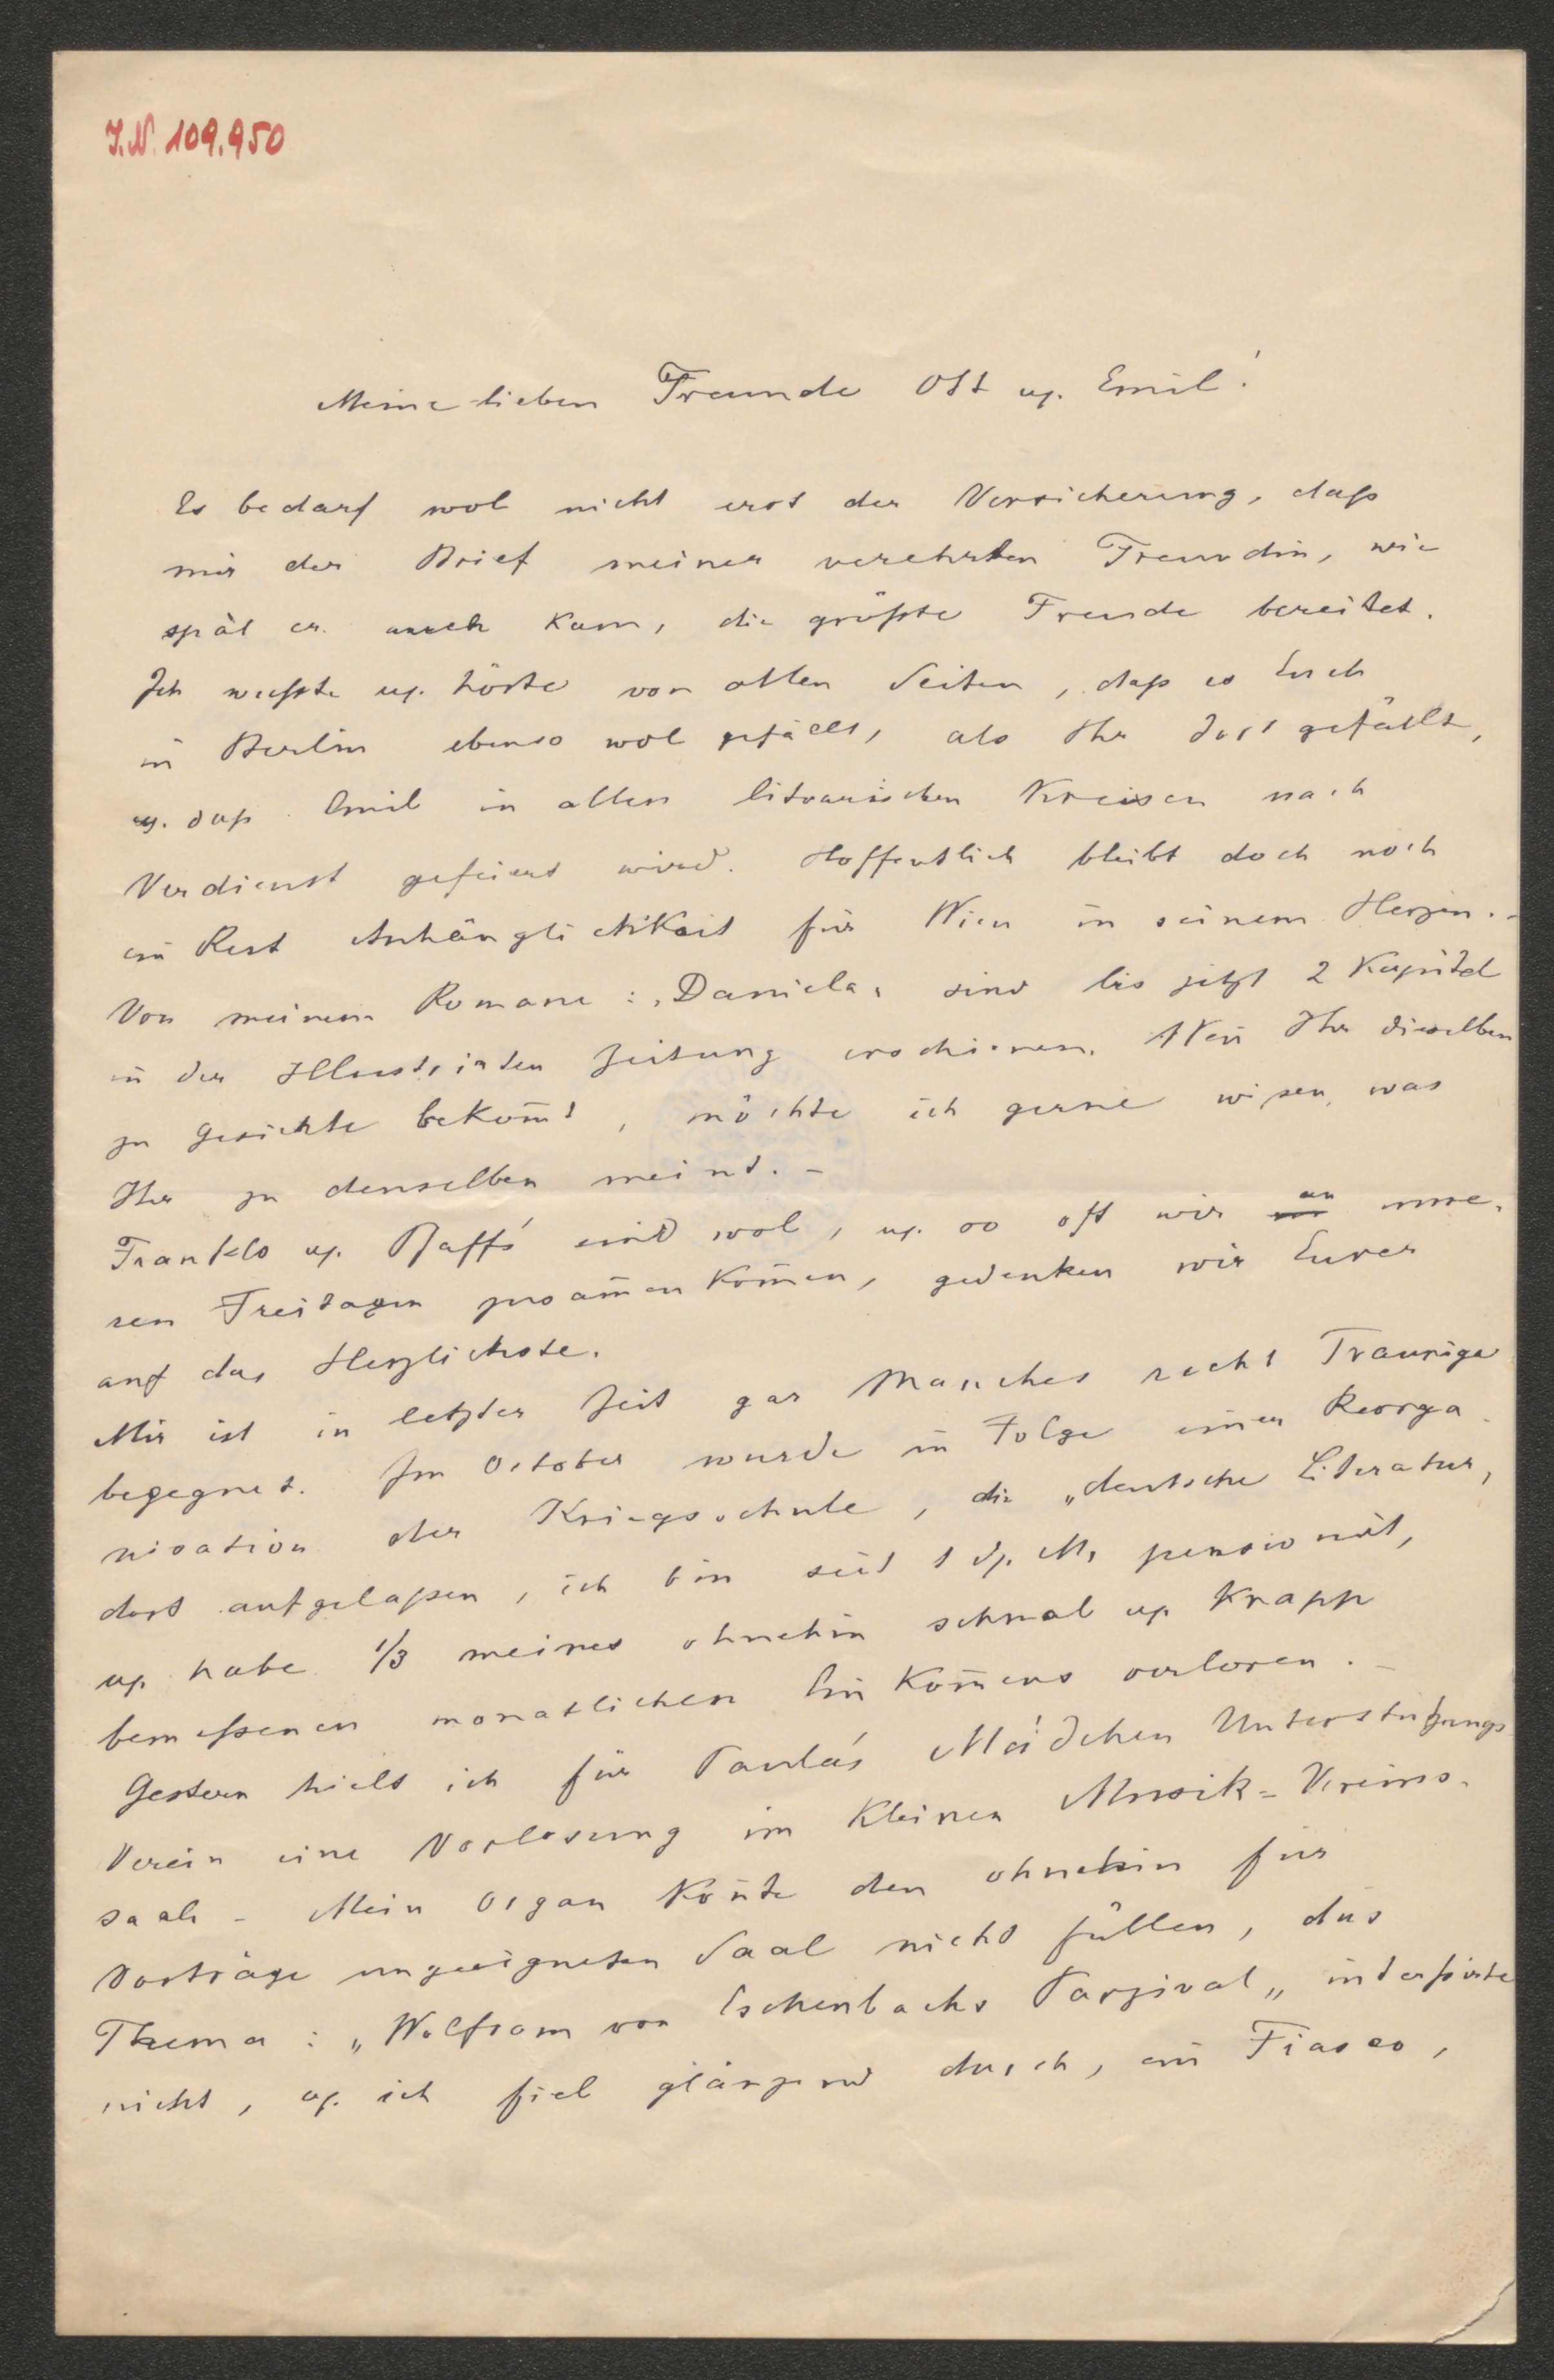 J.N. 109.950
Meine lieben Freunde Ott u. Emil!
Es bedarf wol nicht erst der Versicherung, daß
mir der Brief meiner verehrten Freundin, wie
spät er auch kam, die größte Freude bereitet.
Ich wußte u. hörte von allen Seiten, daß es Euch
in Berlin ebenso wol gefällt, als Ihr dort gefällt,
u. daß Emil in allen literarischen Kreisen nach
Verdienst gefeiert wird. Hoffentlich bleibt doch noch
ein Rest Anhänglichkeit für Wien in seinem Herzen. –
Von meinem Romane: „Daniela„ sind bis jetzt 2 Kapitel
in der Illustrirten Zeitung erschienen. Wen̄ Ihr dieselben
zu Gesichte bekom̄t, möchte ich gerne wißen, was
Ihr zu denselben meint. –
Frankls u. Baff's sind wol, u. so oft wir an unse-
ren Freitagen zusam̄en kom̄en, gedenken wir Eurer
auf das Herzlichste.
Mir ist in letzter Zeit gar Manches recht Traurige
begegnet. Im October wurde in Folge einer Reorga-
nisation der Kriegsschule, die „deutsche Literatur„
dort aufgelaßen, ich bin seit 1 d. M. pensionirt,
u. habe 1/3 meines ohnehin schmal u. knapp
bemeßenen monatlichen Einkom̄ens verloren. –
Gestern hielt ich für Paula's Mädchen Unterstützungs
Verein eine Vorlesung im kleinen Musik-Vereins-
saale – Mein Organ kon̄te den ohnehin für
Vorträge ungeeigneten Saal nicht füllen, das
Thema: „Wolfram von Eschenbachs Parzival„ intereßirte
nicht, u. ich fiel glänzend durch, ein Fiasco,